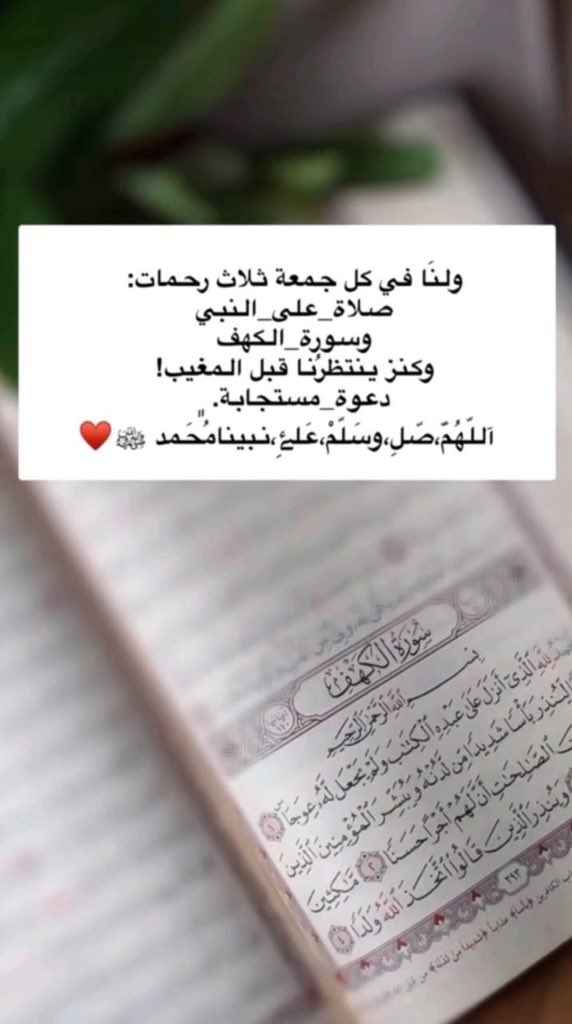 ولنَا في كل جمعة ثلاث رحمات:
صلاة_على_النبي
وسورة_الكهف
وكنز ينتظرُنا قبل المغيب!
دعوة_مستجابة.
اَللّهُمّ،صّلِ،وسَلّمْ،عَلئِ،نبينامُحَمد ﷺ❤️
سُورَةُ الكَهْفِ
بِسْمِ اللَّهِ الرَّحْمَٰنِ الرَّحِيمِ
لِلَّهِ الَّذِي أَنزَلَ عَلَىٰ عَبْدِهِ الْكِتَٰبَ وَلَمْ يَجْعَل لَّهُ عِوَجَا ۜ ١
لِّيُنذِرَ بَأْسًا شَدِيدًا مِّن لَّدُنْهُ وَيُبَشِّرَ الْمُؤْمِنِينَ الَّذِينَ
الصَّٰلِحَٰتِ أَنَّ لَهُمْ أَجْرًا حَسَنًا ٢ مَّٰكِثِينَ
وَيُنذِرَ الَّذِينَ قَالُوا۟ اتَّخَذَ اللَّهُ وَلَدًا ٤
٢٩٣